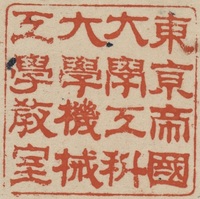 東京帝國
大學工科
大學機械
工學教室